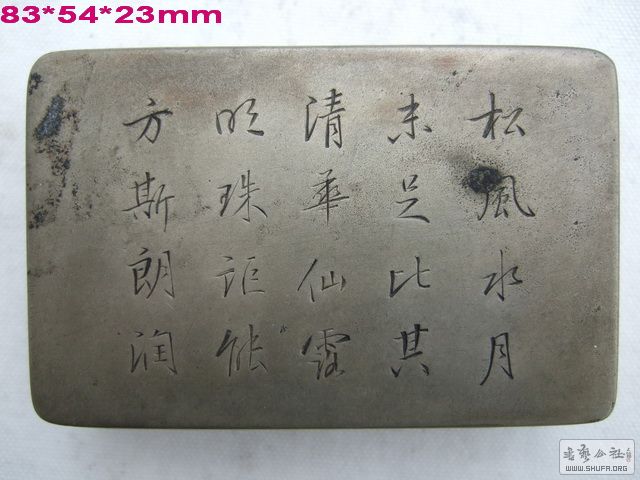 83*54*23mm
松風水月
未足比其
清華仙露
明珠詎能
方斯朗润
书艺公社
WWW.SHUFA.ORG